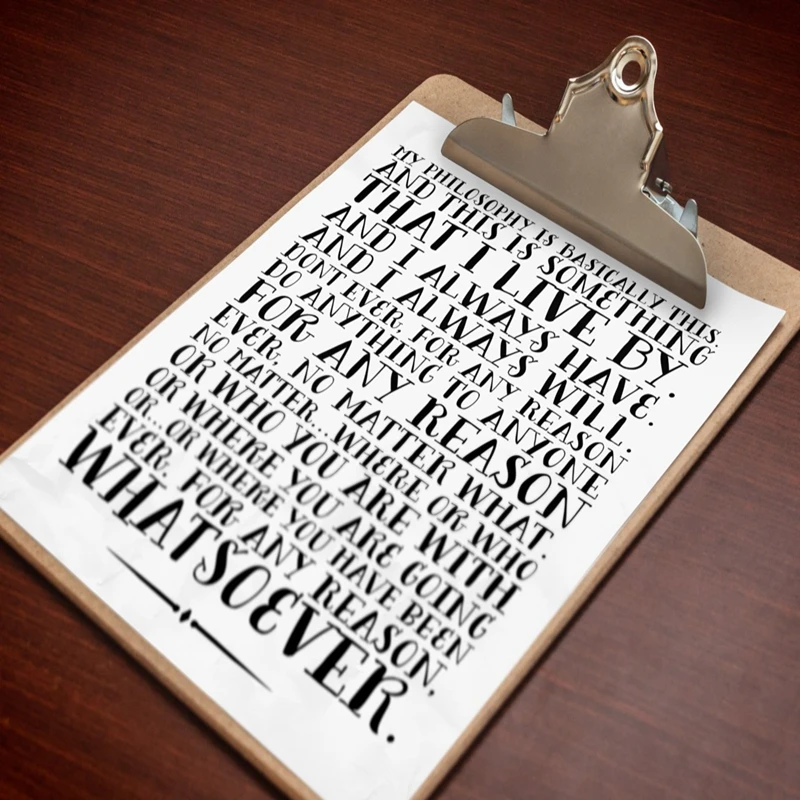 MY PHILOSOPHY IS BASICALLY THIS,
AND THIS IS SOMETHING
THAT I LIVE BY.
AND I ALWAYS HAVE.
AND I ALWAYS WILL.
DON'T EVER, FOR ANY REASON
DO ANYTHING TO ANYONE
FOR ANY REASON
EVER, NO MATTER WHAT.
NO MATTER...WHERE OR WHO
OR WHO YOU ARE WITH
OR WHERE YOU ARE GOING
OR...OR WHERE YOU HAVE BEEN
EVER, FOR ANY REASON,
WHATSOEVER.